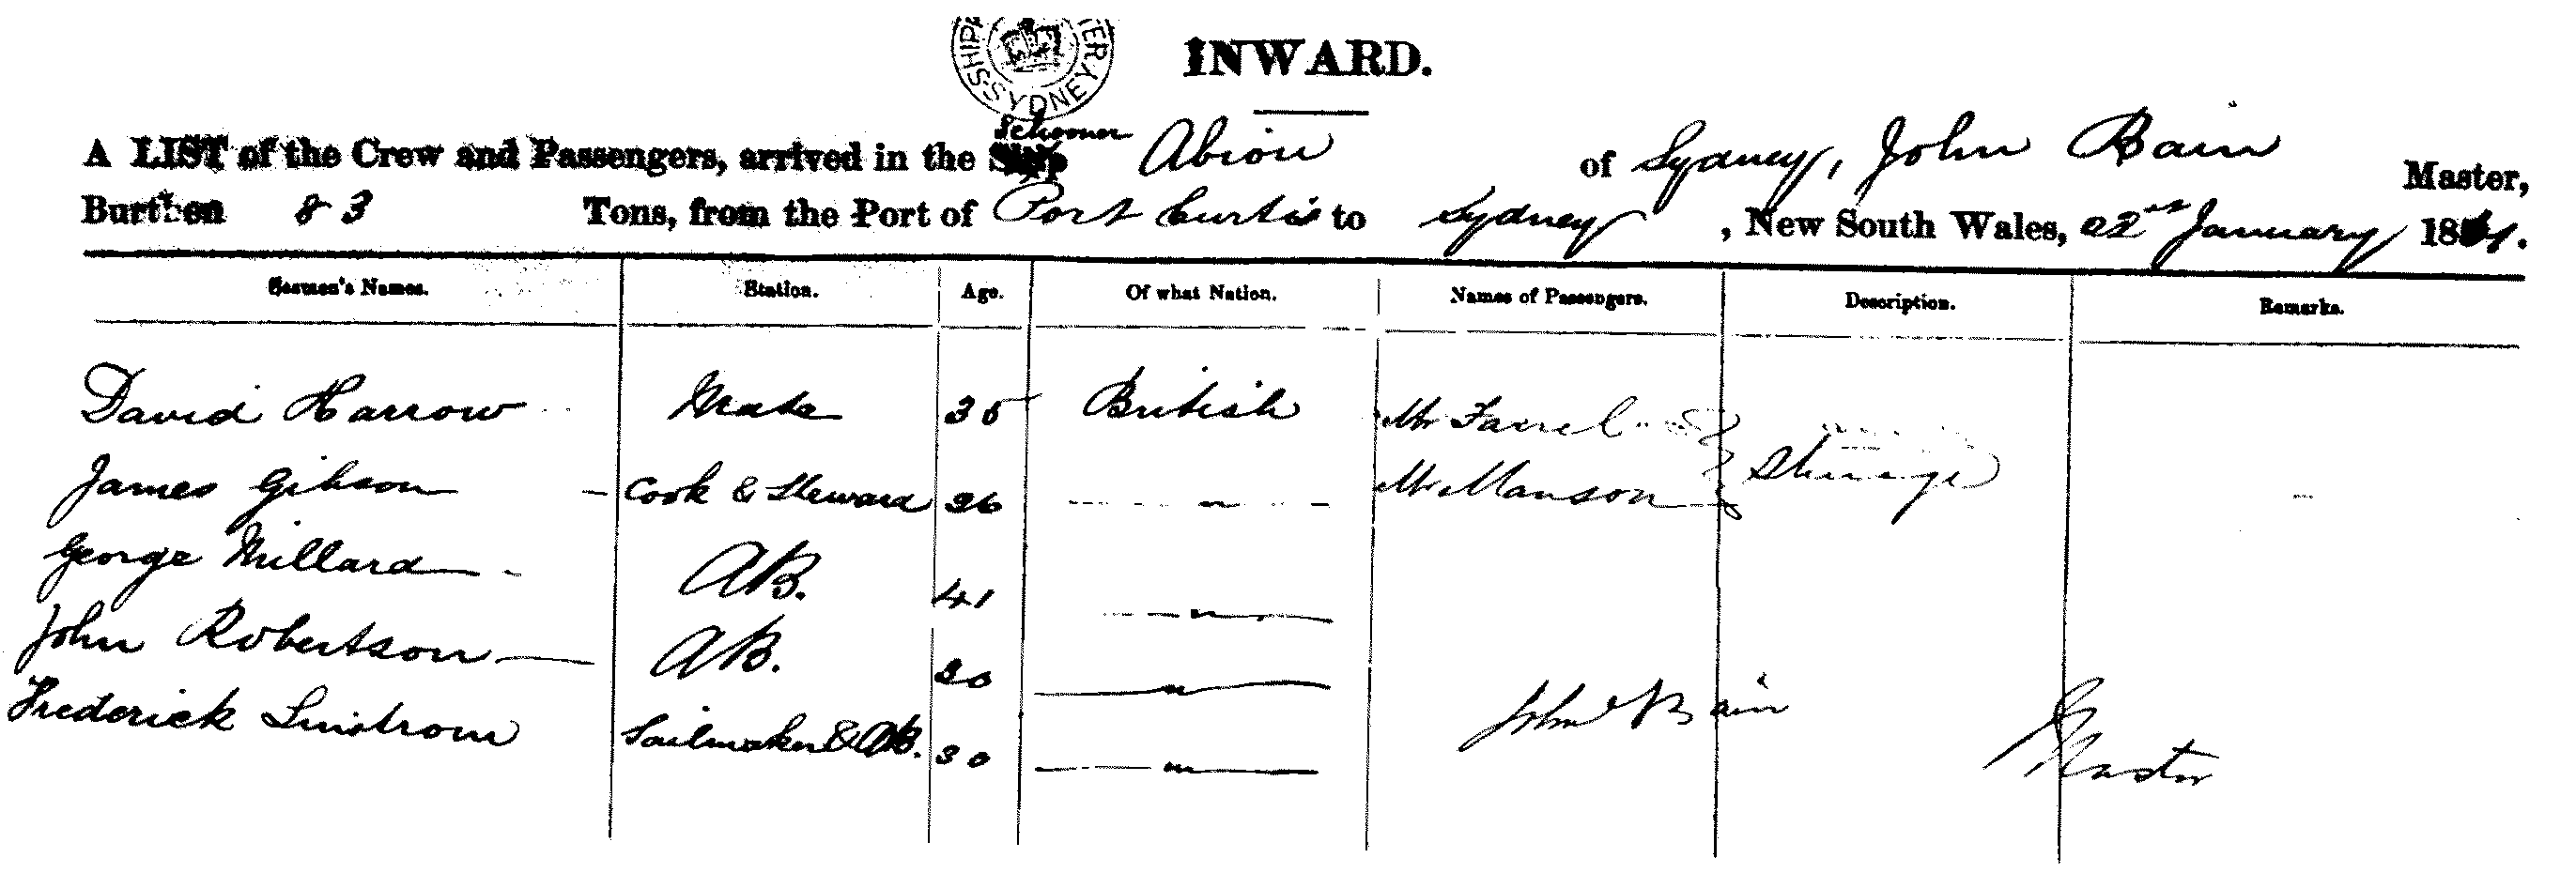 SHIP SYDNEY
INWARD.
Schooner
A LIST of the Crew and Passengers, arrived in the Ship Abion of Sydney, John Bain Master,
Burthen 83 Tons, from the Port of Port Curtis to Sydney, New South Wales, 22nd January 1861.
Seamen's Names. Station. Age. Of what Nation. Names of Passengers. Description. Remarks.
David Harrow Mate 35 British Mr Farrel
James Gibson Cook & Steward 26 " Mr Manson Steerage
George Millard AB. 41 "
John Robertson AB. 30 "
Frederick Linstrom Sailmaker & AB. 30 "
John Bain
Master